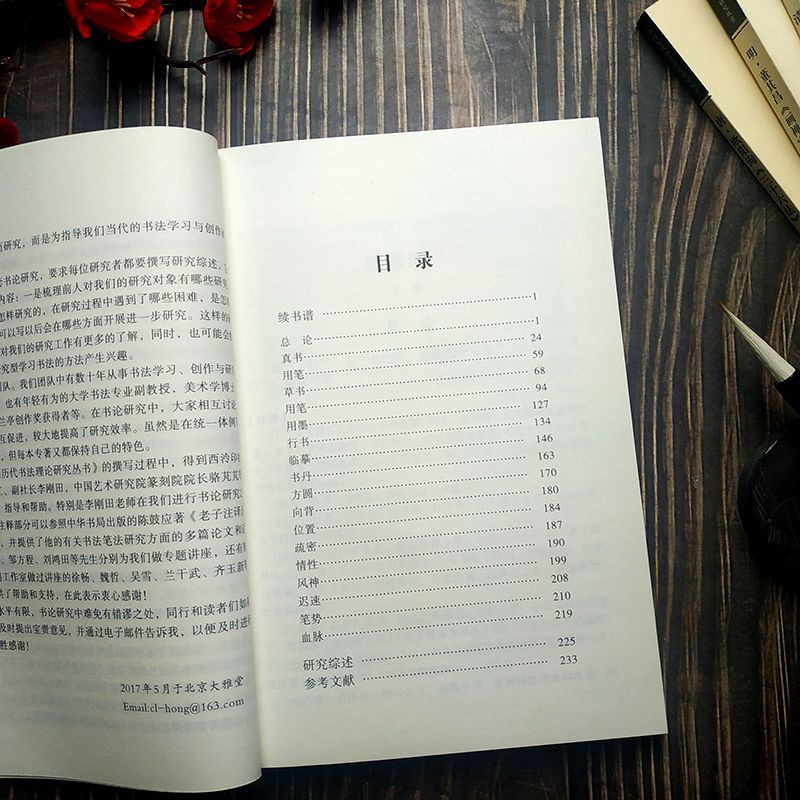 研究，而是为指导我们当代的书法学习与创作
书论研究，要求每位研究者都要撰写研究综述、
内容：一是梳理前人对我们的研究对象有哪些研究
怎样研究的，在研究过程中遇到了哪些困难，是怎
可以写以后会在哪些方面开展进一步研究。这样的
对我们的研究工作有更多的了解，同时，也可能会
究型学习书法的方法产生兴趣。
团队。我们团队中有数十年从事书法学习、创作与研
，也有年轻有为的大学书法专业副教授、美术学博士
兰亭创作奖获得者等。在书论研究中，大家相互讨论
互促进，较大地提高了研究效率。虽然是在统一体例
，但每本专著又都保持自己的特色。
历代书法理论研究丛书》的撰写过程中，得到西泠印
、副社长李刚田，中国艺术研究院篆刻院院长骆芃芃
指导和帮助。特别是李刚田老师在我们进行书论研究
注释部分可以参照中华书局出版的陈鼓应著《老子注译
，并提供了他的有关书法笔法研究方面的多篇论文和
、邹方程、刘鸿田等先生分别为我们做专题讲座，还有
工作室做过讲座的徐畅、魏哲、吴雪、兰干武、齐玉新
供了帮助和支持，在此表示衷心感谢！
水平有限，书论研究中难免有错谬之处，同行和读者们如
及时提出宝贵意见，并通过电子邮件告诉我，以便及时进
胜感谢！
2017年5月于北京大雅堂
Email:cl-hong@163.com
目 录
续书谱 1
总 论 1
真书 24
用笔 59
草书 68
用笔 94
用墨 127
行书 134
临摹 146
书丹 163
方圆 170
向背 180
位置 184
疏密 187
情性 190
风神 199
迟速 208
笔势 210
血脉 219
研究综述 225
参考文献 233
明·董其昌《画禅